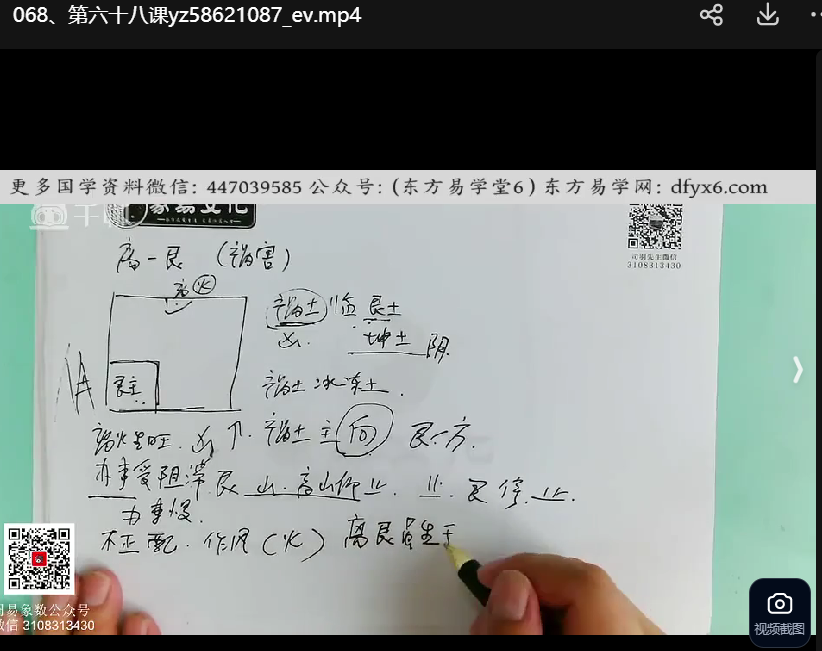 068、第六十八课yz58621087_ev.mp4
更多国学资料微信: 447039585 公众号: (东方易学堂6) 东方易学网: dfyx6.com
千聊
易文化
3108313430
离一艮 (祸害)
离 火
祸土 临 艮土
凶. 坤土 阴
艮主
祸土 冰冻土.
祸火生旺. 凶 祸土 主 向 艮方.
办事受阻滞 艮 山. 高山仰止. 止. 艮 停止.
办事慢.
不正配. 作风(火) 离艮
易象数公众号
信 3108313430
视频截图